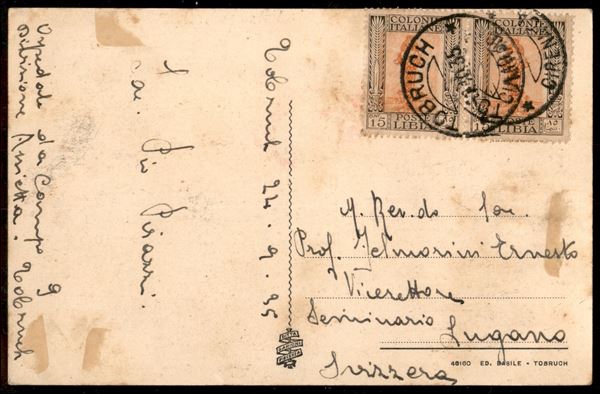 Ospedale da Campo 9
Divisione Assietta. Tobruch
Sac. Pio Pirazzi.
Tobruk 22.9.35
COLONIE ITALIANE
15 POSTE
LIBIA
COLONIE
ITALIANE
POSTE
LIBIA
TOBRUCH
M. Rev.do Sac.
Prof. Gelmorini Ernesto
Vicerettore
Seminario Lugano
Svizzera
46160 ED. BASILE - TOBRUCH